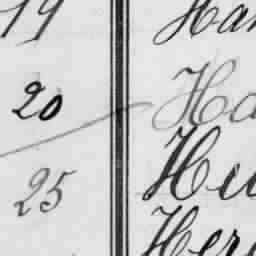 19 Han
20 Ha
25 Hu
Her